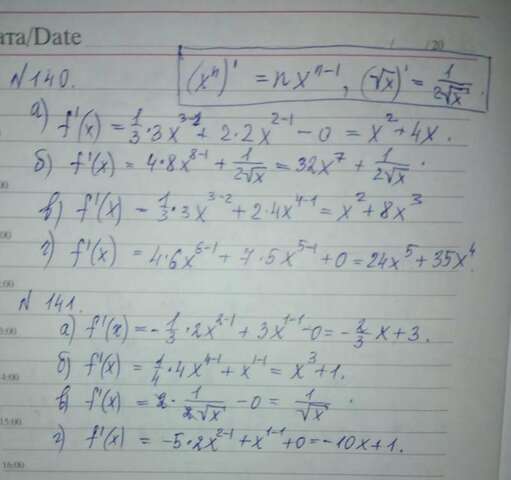 ата/Date
/ /20
N 140. (xⁿ)' = nxⁿ⁻¹, (√x)' = 1/(2√x).
а) f'(x) = 1/3·3x³⁻¹ + 2·2x²⁻¹ - 0 = x² + 4x.
б) f'(x) = 4·8x⁸⁻¹ + 1/(2√x) = 32x⁷ + 1/(2√x).
в) f'(x) = 1/3·3x³⁻² + 2·4x⁴⁻¹ = x² + 8x³
г) f'(x) = 4·6x⁶⁻¹ + 7·5x⁵⁻¹ + 0 = 24x⁵ + 35x⁴.
N 141.
а) f'(x) = -1/3·2x²⁻¹ + 3x¹⁻¹ - 0 = -2/3 x + 3.
б) f'(x) = 1/4·4x⁴⁻¹ + x¹⁻¹ = x³ + 1.
14:00
в) f'(x) = 2·1/(2√x) - 0 = 1/√x.
15:00
г) f'(x) = -5·2x²⁻¹ + x¹⁻¹ + 0 = -10x + 1.
16:00